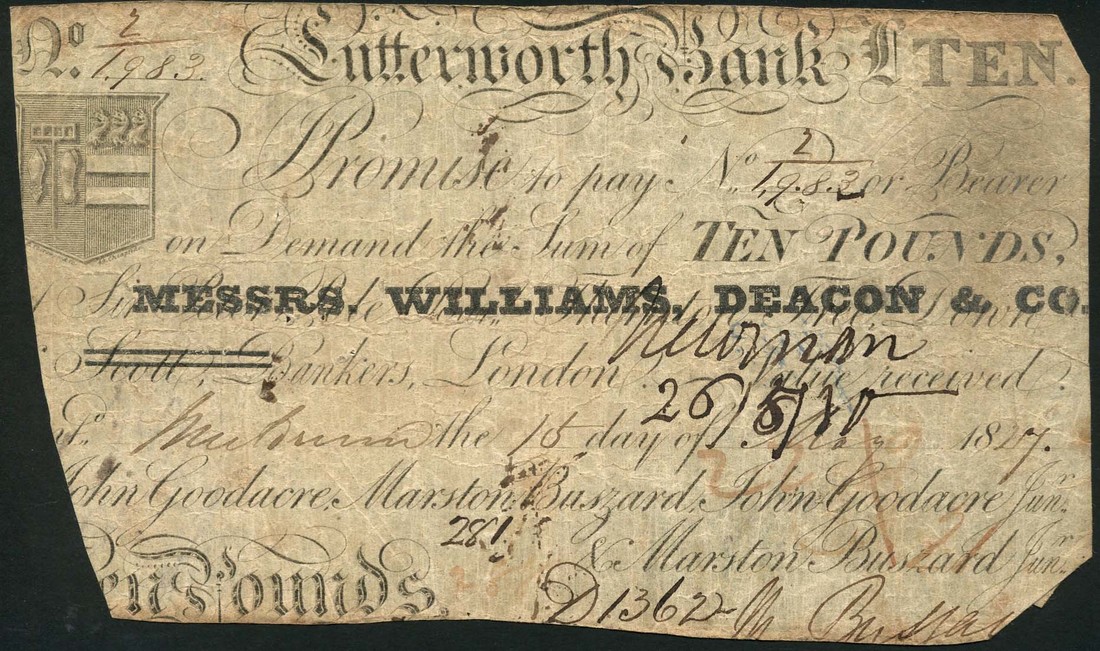 No. 2/1983 Lutterworth Bank £TEN.
Promise to pay No. 2/1983 or Bearer
on Demand the Sum of TEN POUNDS,
MESSRS. WILLIAMS, DEACON & CO.
Scott, Bankers, London. Value received.
26/5/10
the 15 day of 1827.
John Goodacre, Marston Buszard, John Goodacre Junr.
281
& Marston Buszard Junr.
Ten Pounds.
D1362 M Buszar